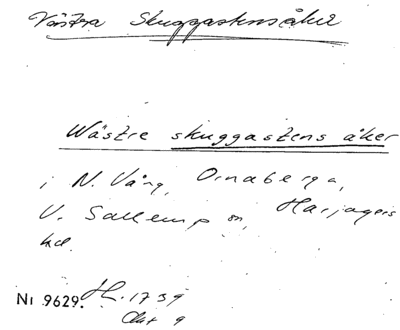 Västra Skuggastensåker
Wästre skuggastens åker
i N. Vång, Ornaberga,
V. Sallerup sn, Harjagers
hd.
Nr 9629. H. 1739
Akt 9